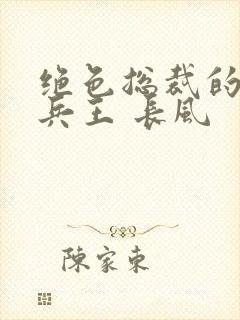 绝色总裁的
兵王 長風
陳家東